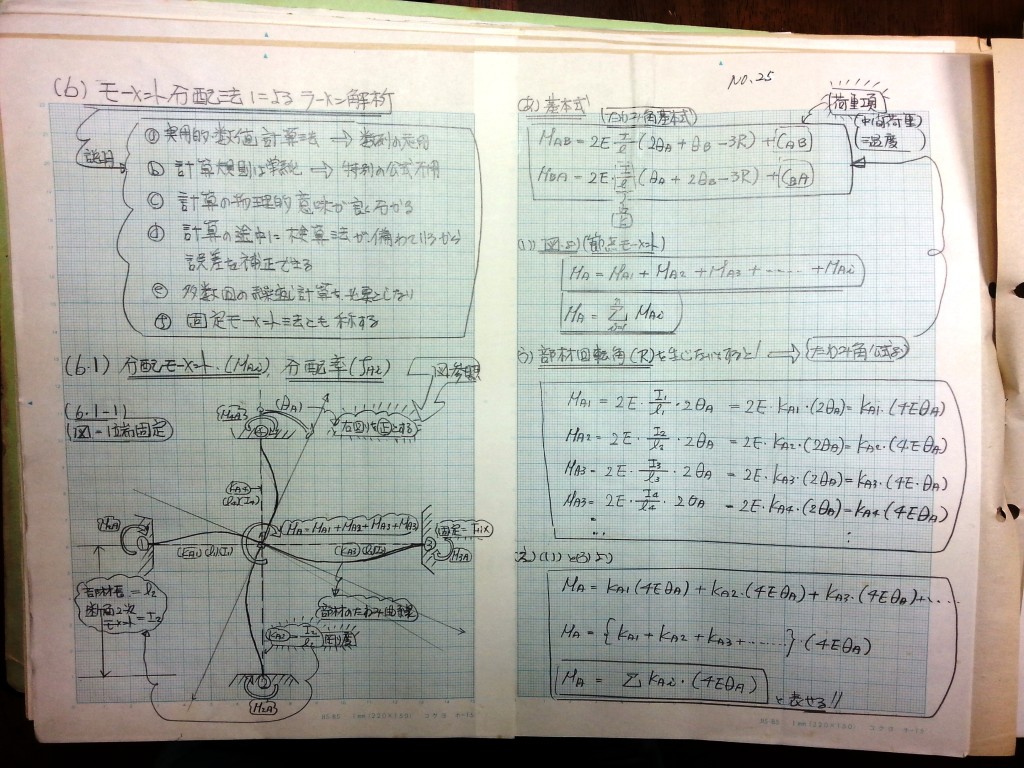 (6) モーメント分配法によるラーメン解析
説明
ⓐ 実用的数値計算法 → 数列の応用
ⓑ 計算規則は単純化 → 特別の公式不用
ⓒ 計算の物理的意味が良く分かる
ⓓ 計算の途中に検算法が備わっているから
誤差を補正できる
ⓔ 多数回の繰返し計算を必要としない
ⓕ 固定モーメント法とも称する
(6.1) 分配モーメント(MAi), 分配率(fAi)
図参照
(6.1-1)
(図-1) 端固定
(θA)
右回りを正とする
M4A
④
KA4
(l4)(I4)
M1A
①
(KA1)(l1)(I1)
A
MA=MA1+MA2+MA3+MA3
(KA3)(l3)(I3)
③
固定=Fix
M3A
部材長=l2
断面2次
モーメント=I2
部材のたわみ曲線
KA2=I2/l2 剛度
②
M2A
NO.25
あ) 基本式 (たわみ角基本式)
荷重項
(中間荷重)
=温度
MAB = 2E・I/l・(2θA + θB - 3R) + (CAB)
MBA = 2E・I/l・(θA + 2θB - 3R) + (CBA)
い) 図より(節点モーメント)
MA = MA1 + MA2 + MA3 + ‥‥ + MAi
MA = Σ MAi
う) 部材回転角(R)を生じないとすると! ⇒ たわみ角公式より
MA1 = 2E・I1/l1・2θA = 2E・KA1・(2θA) = KA1・(4EθA)
MA2 = 2E・I2/l2・2θA = 2E・KA2・(2θA) = KA2・(4EθA)
MA3 = 2E・I3/l3・2θA = 2E・KA3・(2θA) = KA3・(4E・θA)
MA3 = 2E・I4/l4・2θA = 2E・KA4・(2θA) = KA4・(4EθA)
え) (い)と(う)より
MA = KA1(4EθA) + KA2・(4EθA) + KA3・(4EθA) + ‥‥
MA = {KA1 + KA2 + KA3 + ‥‥}・(4EθA)
MA = Σ KAi・(4EθA)
と表せる!!